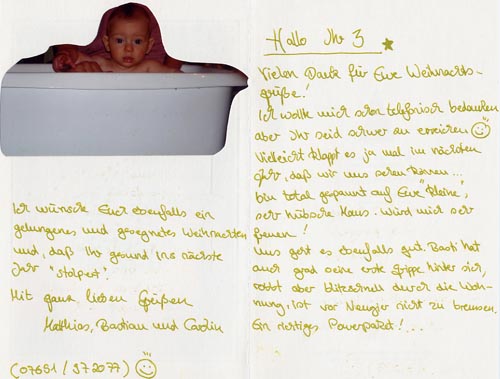 Hallo Ihr 3
Vielen Dank für Eure Weihnachts-
grüße!
Ich wollte mich schon telefonisch bedanken
aber Ihr seid schwer zu erreichen
Vielleicht klappt es ja mal im nächsten
Jahr, daß wir uns sehen können...
bin total gespannt auf Eure "Kleine",
sehr hübsche Maus. Würd mich sehr
freuen!
Uns geht es ebenfalls gut. Basti hat
auch grad seine erste Grippe hinter sich,
robbt aber blitzschnell durch die Woh-
nung, ist vor Neugier nicht zu bremsen.
Ein richtiges Powerpaket!...
Ich wünsche Euch ebenfalls ein
gelungenes und gesegnetes Weihnachten
und, daß Ihr gesund ins nächste
Jahr "stolpert".
Mit ganz lieben Grüßen
Matthias, Bastian und Carolin
(07651/972077)